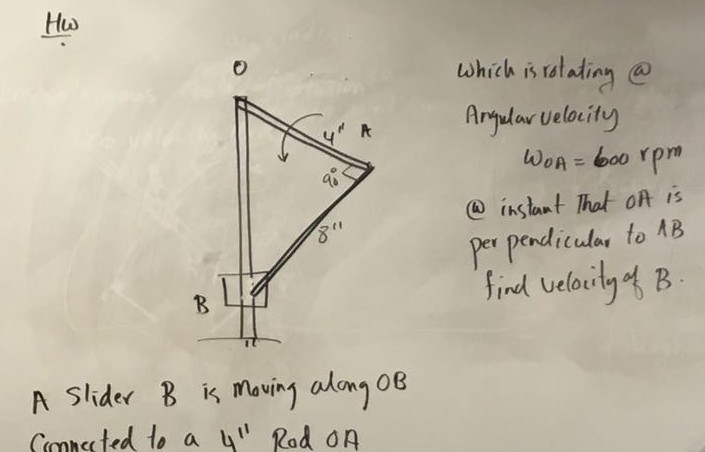 HW
O
4"
A
90°
8"
B
which is rotating @
Angular velocity
ωOA = 600 rpm
@ instant That OA is
perpendicular to AB
find velocity of B.
A slider B is moving along OB
Connected to a 4" Rod OA